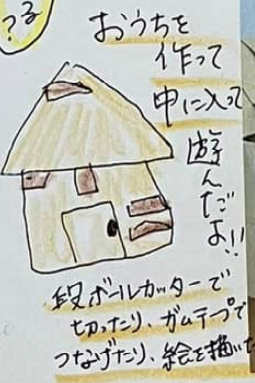 ?る
おうちを
作って
中に入って
遊んだよ!!
段ボールカッターで
切ったり、ガムテープで
つなげたり、絵を描いた